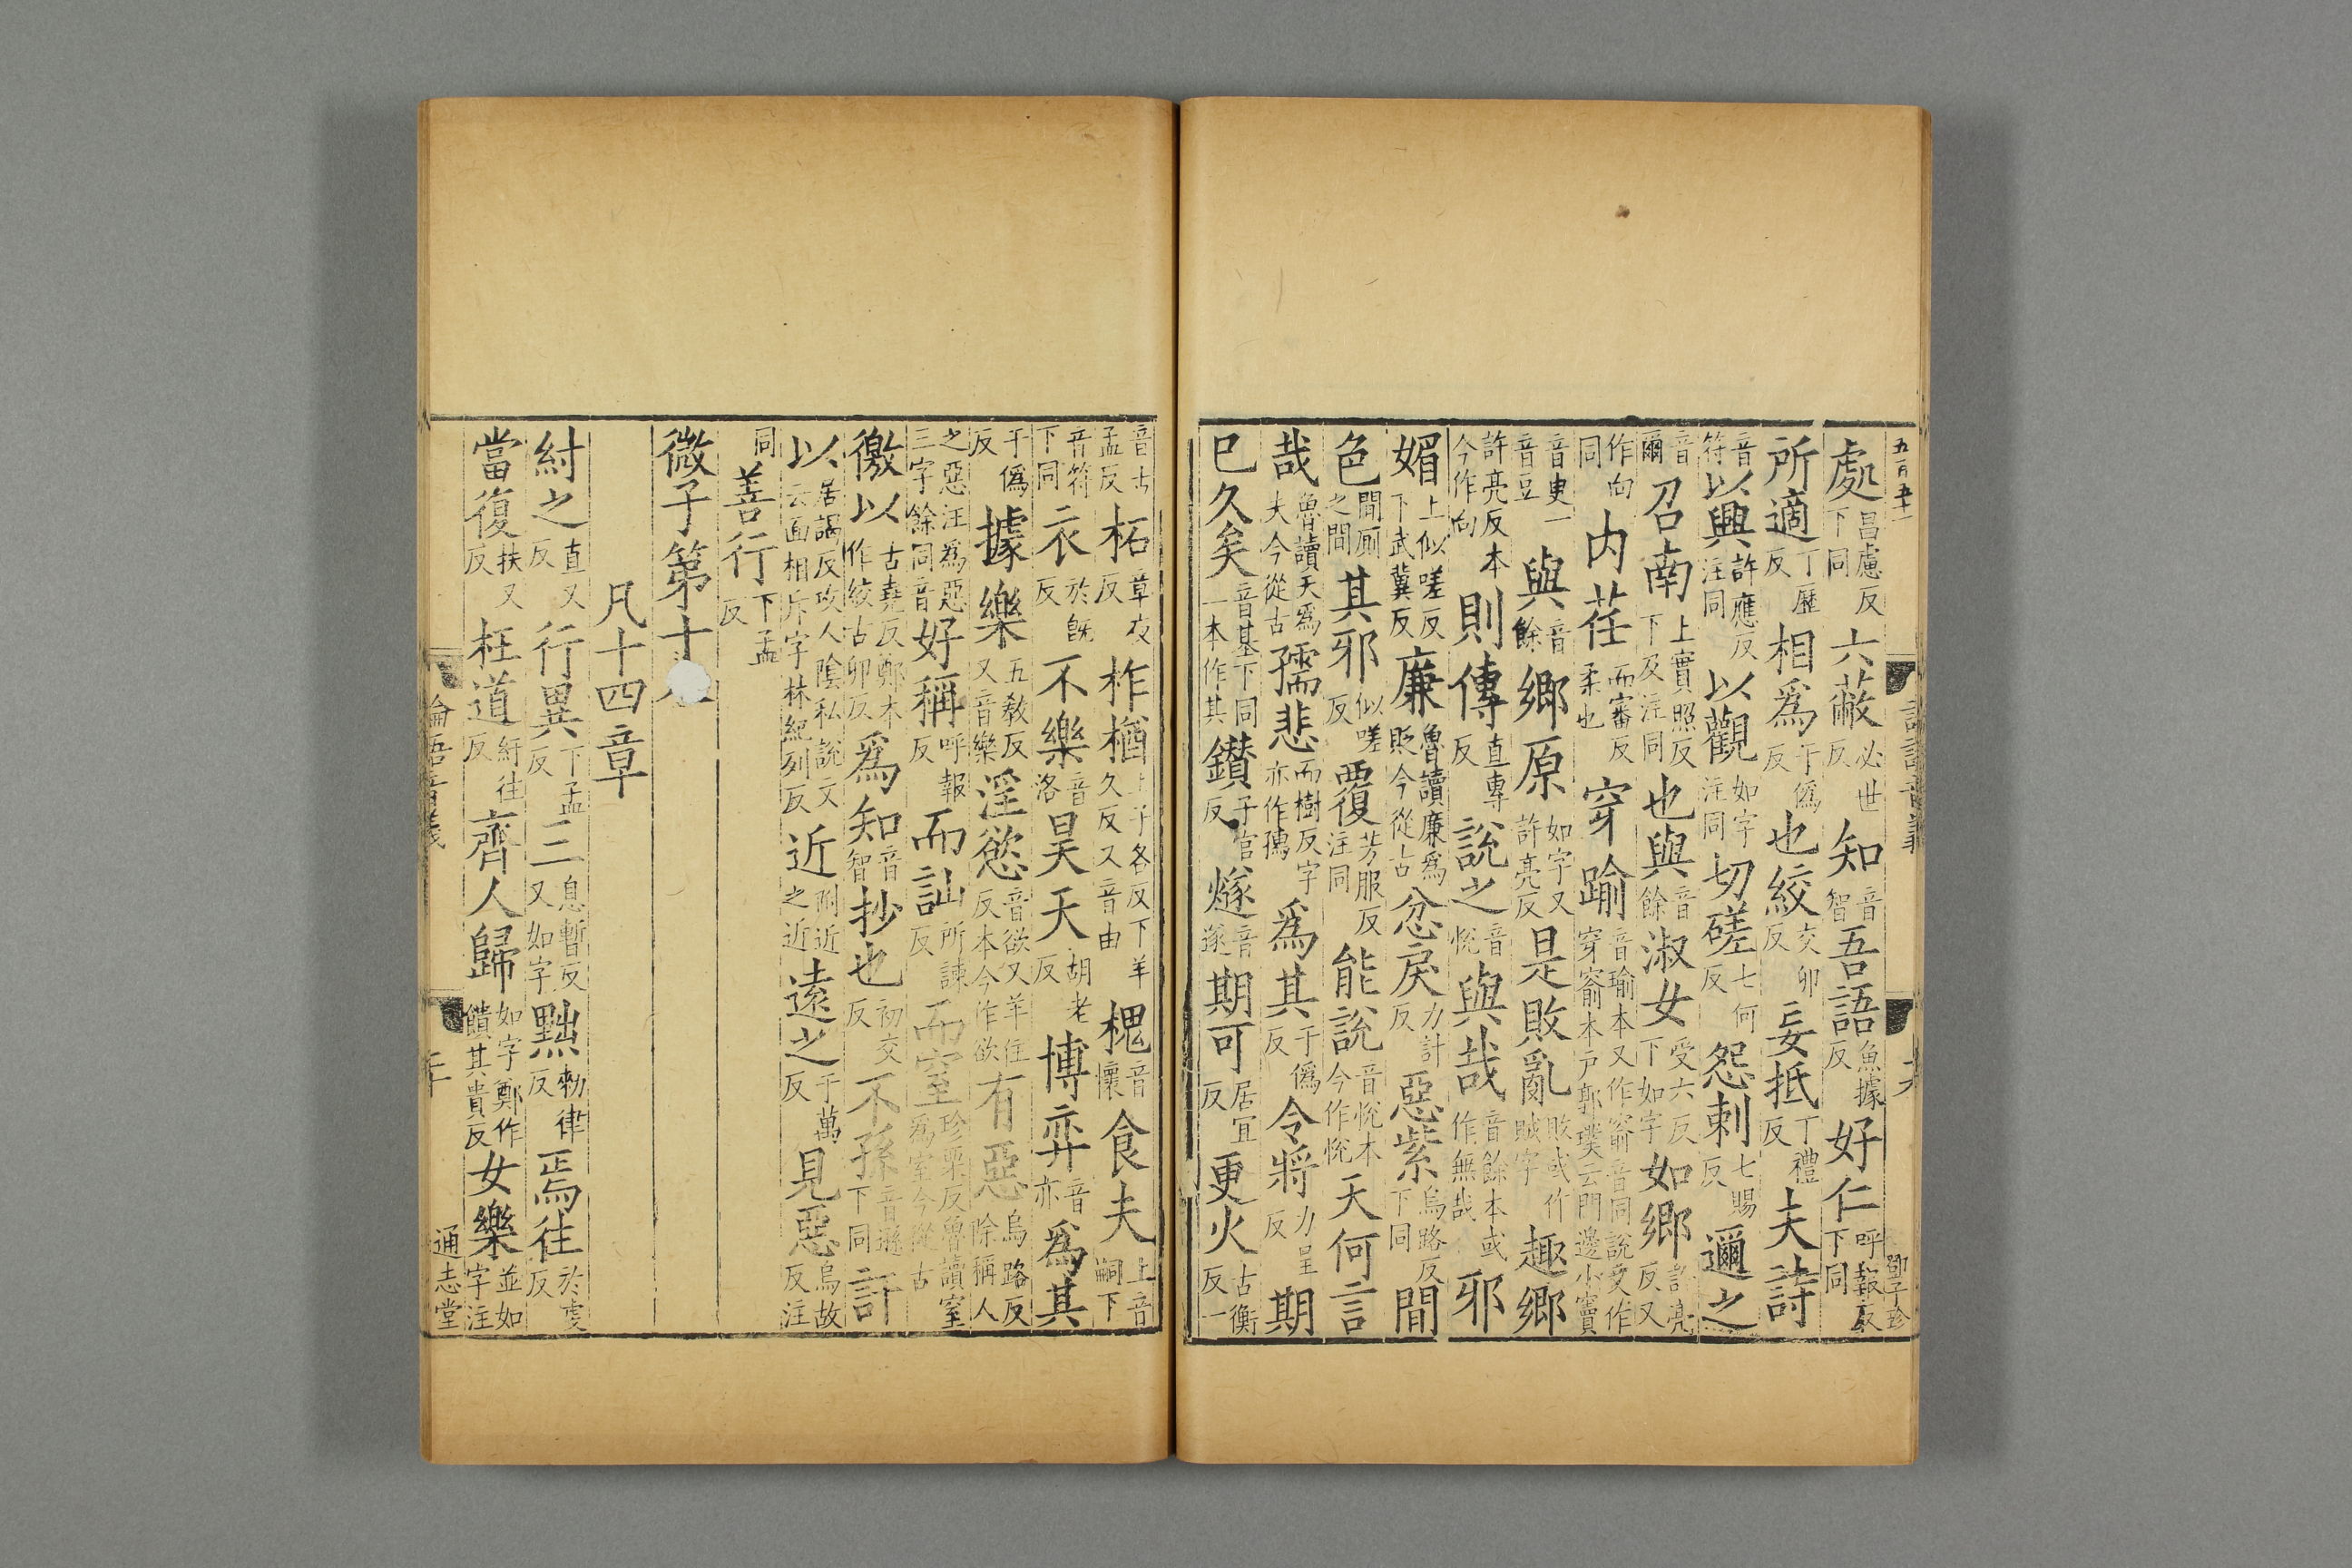 五百五十一
處昌慮反下同六蔽必世反知音智吾語魚據反好仁呼報反下同
所適丁歷反相爲于僞反也絞交卯反妄抵丁禮反夫詩
音符以興許應反注同以觀如字注同切磋七何反怨刺七賜反邇之
音爾召南上實照反下及注同也與音餘淑女受六反下如字如鄉許亮反又
作向同内荏而審反柔也穿踰音瑜本又作窬音同說文作穿窬本戶郭璞云門邊小竇
音臾一音豆與音餘鄉原如字又許亮反是敗亂敗或作賊字趣鄉
許亮反本今作向則傳直專反說之音悅與哉音餘本或作無哉邪
媚上似嗟反下武冀反廉魯讀廉爲貶今從古忿戾力計反惡紫烏路反下同間
色間厠之間其邪似嗟反覆芳服反注同能說音悅本今作悅天何言
哉魯讀天爲夫今從古孺悲而樹反字亦作㺕爲其于僞反令將力呈反期
已久矣音基下同一本作其鑚子官反燧音遂期可居宜反更火古衡反一
音古孟反柘章夜反柞楢上子各反下羊久反又音由槐音懷食夫上音嗣下
音符下同衣於旣反不樂音洛昊天胡老反博弈音亦爲其
于僞反據樂五教反又音樂淫慾音欲又羊住反本今作欲有惡烏路反除稱人
之惡注爲惡三字餘同音好稱呼報反而訕所諫反而窒珍栗反魯讀窒爲室今從古
徼以古堯反鄭本作絞古卯反爲知音智抄也初交反不孫音遜下同訐
以居謁反攻人陰私說文云面相斥字林紀列反近附近之近遠之于萬反見惡烏故反注
同善行下孟反
微子第十
凡十四章
紂之直又反行異下孟反三息暫反又如字黜勑律反焉往於虔反
當復扶又反枉道紆往反齊人歸如字鄭作饋其貴反女樂並如字注
論語音義
通志堂
鄧子珍